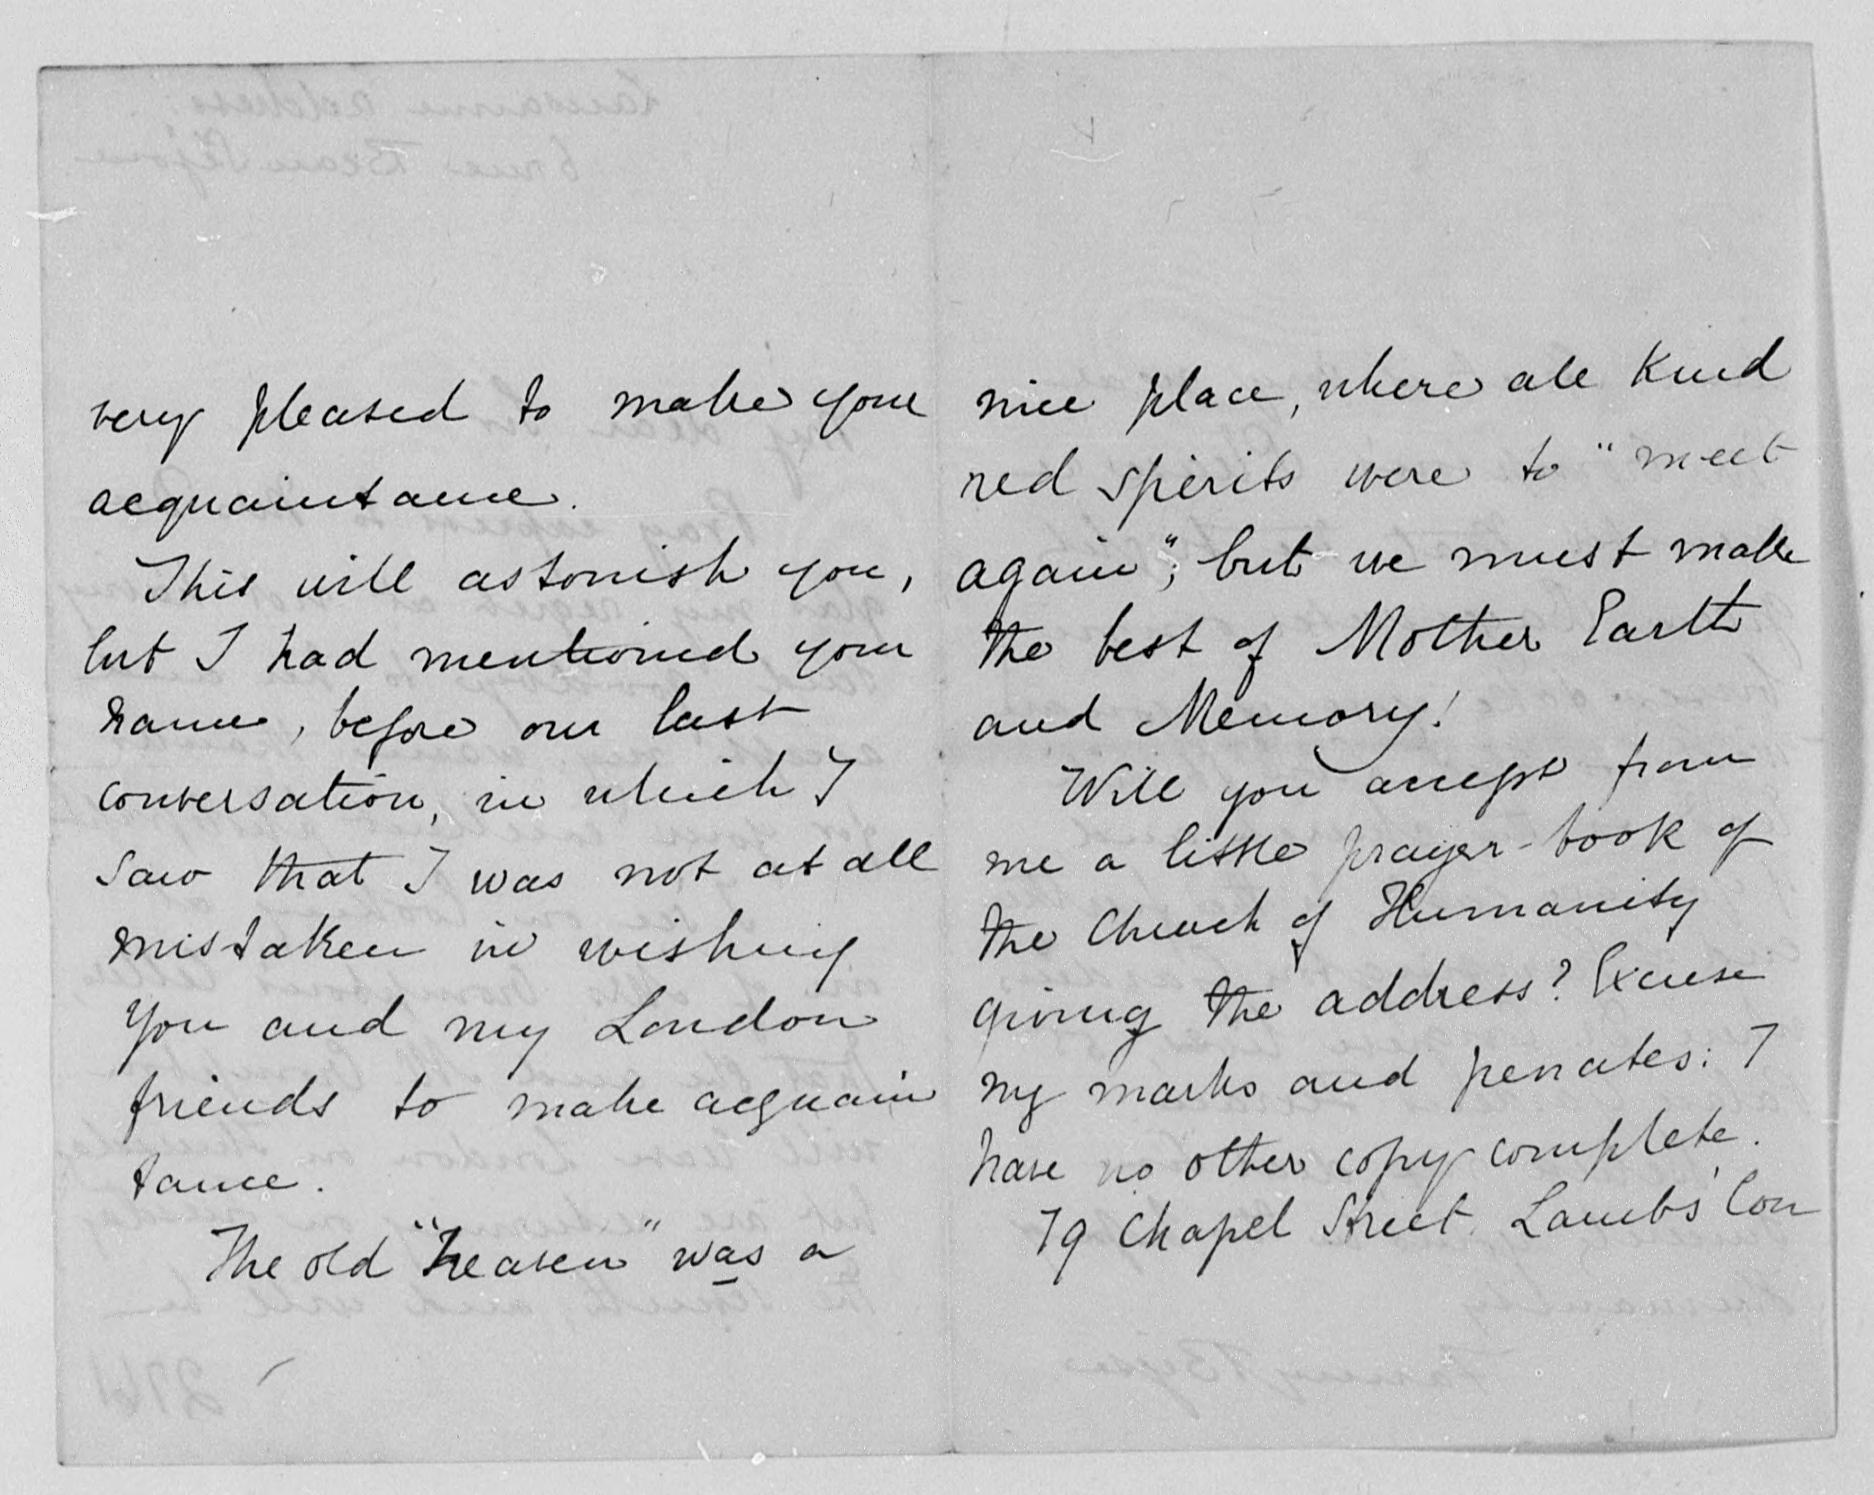 very pleased to make your
acquaintance.
This will astonish you,
but I had mentioned your
name, before our last
conversation, in which I
saw that I was not at all
mistaken in wishing
you and my London
friends to make acquain
tance.
The old "heaven" was a
nice place, where all kind
red spirits were to "meet
again"; but we must make
the best of Mother Earth
and Memory!
Will you accept from
me a little prayer-book of
the Church of Humanity
giving the address? Excuse
my marks and penates: I
have no other copy complete.
19 Chapel Street. Lambs' Con